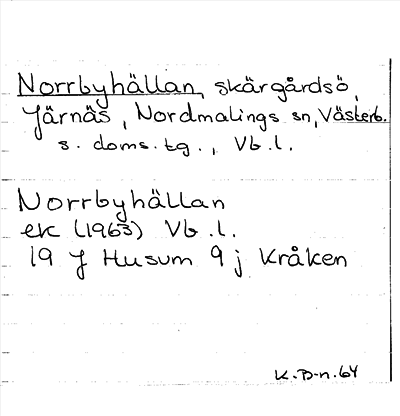 Norrbyhällan, skärgårdsö,
Järnäs, Nordmalings sn, Västerb.
s. doms. tg., Vb.l.
Norrbyhällan
ek (1963) Vb.l.
19 J Husum 9 j Kråken
K.D-n.64